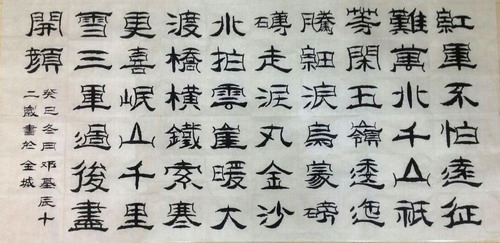 紅軍不怕遠征
難萬水千山祇
等閑五嶺逶迤
騰細浪烏蒙磅
礴走泥丸金沙
水拍雲崖暖大
渡橋橫鐵索寒
更喜岷山千里
雪三軍過後盡
開顏
癸巳冬月邓辰十
二歲書於金城